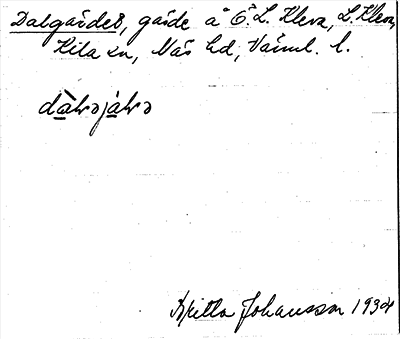 Dalgärdet, gärde å Ö. L. Kleva, L. Kleva,
Kila sn, Näs hd, Värml. l.
Britta Johansson 1934